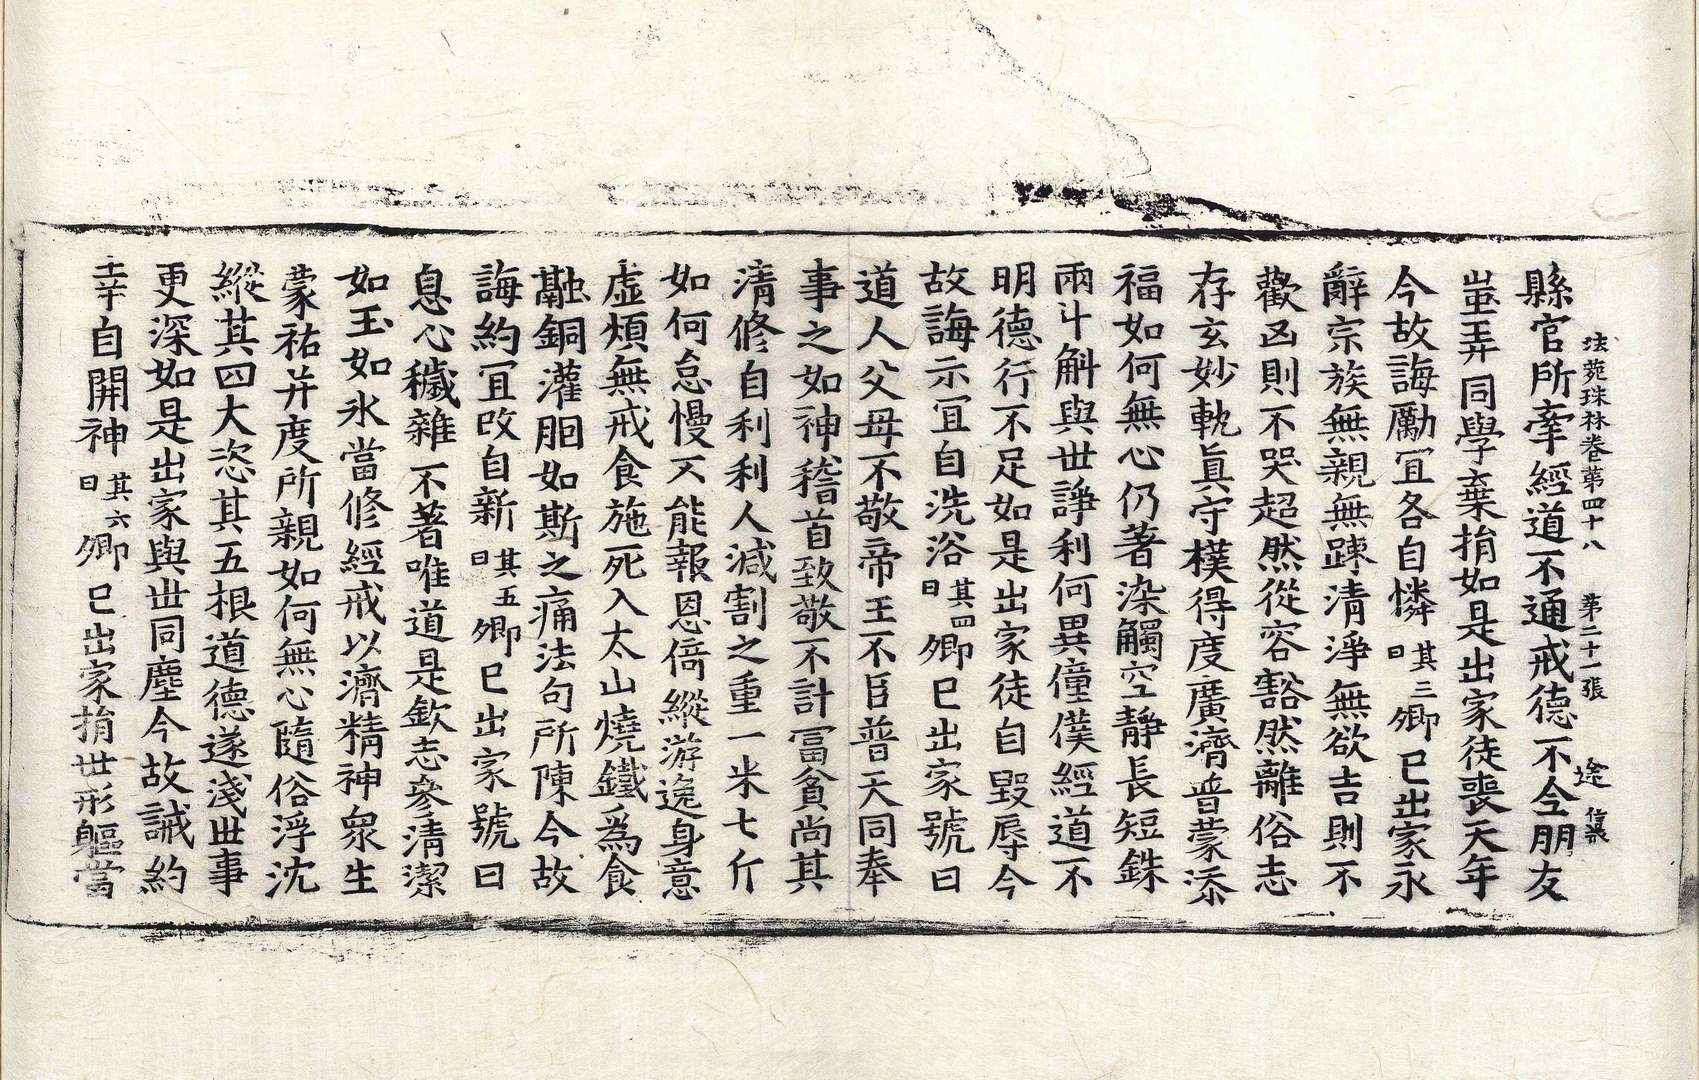 法苑珠林卷第四十八　第二十一張　途
縣官所牽經道不通戒德不全朋友
蚩弄同學棄捐如是出家徒喪天年
今故誨勵冝各自憐其三曰卿已出家永
辭宗族無親無踈清淨無欲吉則不
歡凶則不哭超然從容豁然離俗志
存玄妙軌真守樸得度廣濟普蒙添
福如何無心仍著染觸空靜長短銖
兩斗斛與世諍利何異僮僕經道不
明德行不足如是出家徒自毀辱今
故誨示冝自洗浴其四曰卿已出家號曰
道人父母不敬帝王不臣普天同奉
事之如神稽首致敬不計冨貧尚其
清修自利利人減割之重一米七斤
如何怠慢不能報恩倚縱游逸身意
虛煩無戒食施死入太山燒鐵為食
融銅灌咽如斯之痛法句所陳今故
誨約冝改自新其五曰卿已出家號曰
息心穢雜不著唯道是欽志參清潔
如玉如氷當修經戒以濟精神衆生
蒙祐并度所親如何無心隨俗浮沈
縱其四大恣其五根道德遂淺世事
更深如是出家與世同塵今故誡約
幸自開神其六曰卿已出家捐世形軀當